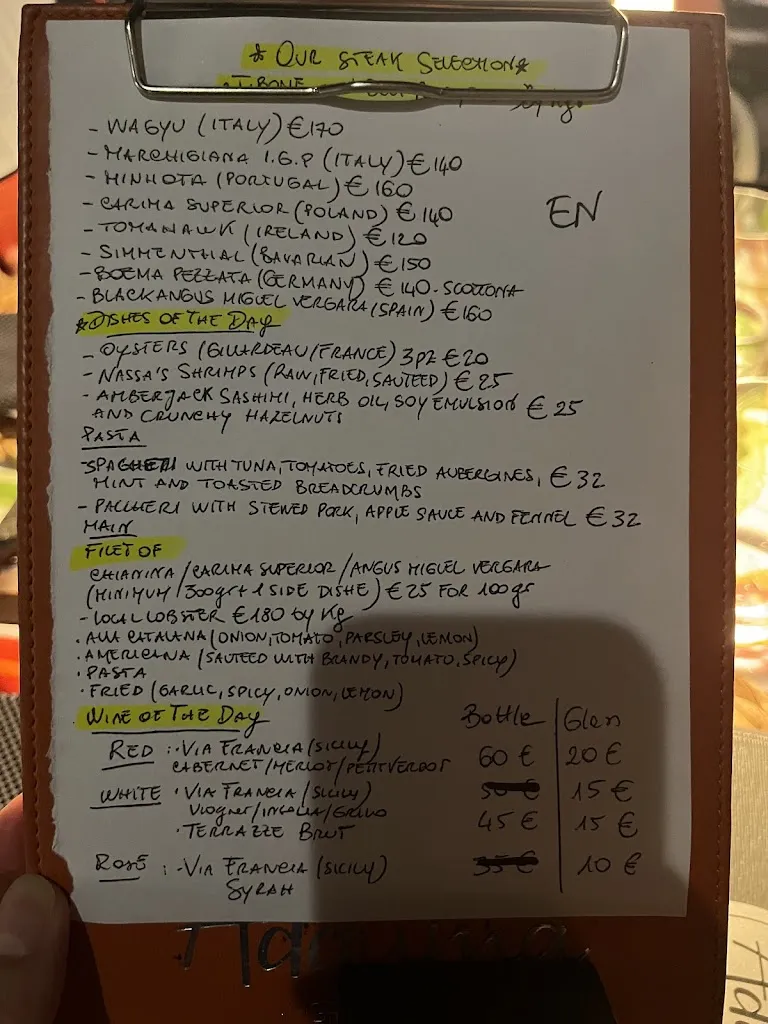 * OUR STEAK SELECTION *
- T-BONE
- WAGYU (ITALY) €170
- MARCHIGIANA I.G.P (ITALY) € 140
- MINHOTA (PORTUGAL) € 160
- CARIMA SUPERIOR (POLAND) € 140
EN
- TOMANAWK (IRELAND) € 120
- SIMMENTHAL (BAVARIAN) € 150
- BOEMA PEZZATA (GERMANY) € 140 - SCOTTONA
- BLACKANGUS MIGUEL VERGARA (SPAIN) € 160
* DISHES OF THE DAY
- OYSTERS (GILLARDEAU/FRANCE) 3PZ €20
- NASSA'S SHRIMPS (RAW, FRIED, SAUTEED) € 25
- AMBERJACK SASHIMI, HERB OIL, SOY EMULSION € 25
AND CRUNCHY HAZELNUTS
PASTA
- SPAGHETTI WITH TUNA, TOMATOES, FRIED AUBERGINES, € 32
MINT AND TOASTED BREADCRUMBS
- PACCHERI WITH STEWED PORK, APPLE SAUCE AND FENNEL € 32
MAIN
FILET OF
CHIANINA / CARIMA SUPERIOR / ANGUS MIGUEL VERGARA
(MINIMUM 300gr + 1 SIDE DISHE) € 25 FOR 100gr
- LOCAL LOBSTER € 180 by Kg
• ALLA CATALANA (ONION, TOMATO, PARSLEY, LEMON)
• AMERICANA (SAUTEED WITH BRANDY, TOMATO, SPICY)
• PASTA
• FRIED (GARLIC, SPICY, ONION, LEMON)
WINE OF THE DAY Bottle Glass
RED : - VIA FRANCIA (SICILY) 60 € 20 €
CABERNET / MERLOT / PETIT VERDOT
WHITE • VIA FRANCIA (SICILY) 50 € 15 €
Viogner / INSOLIA / GRILLO
• TERRAZZE BRUT 45 € 15 €
ROSÉ : - VIA FRANCIA (SICILY) 35 € 10 €
SYRAH